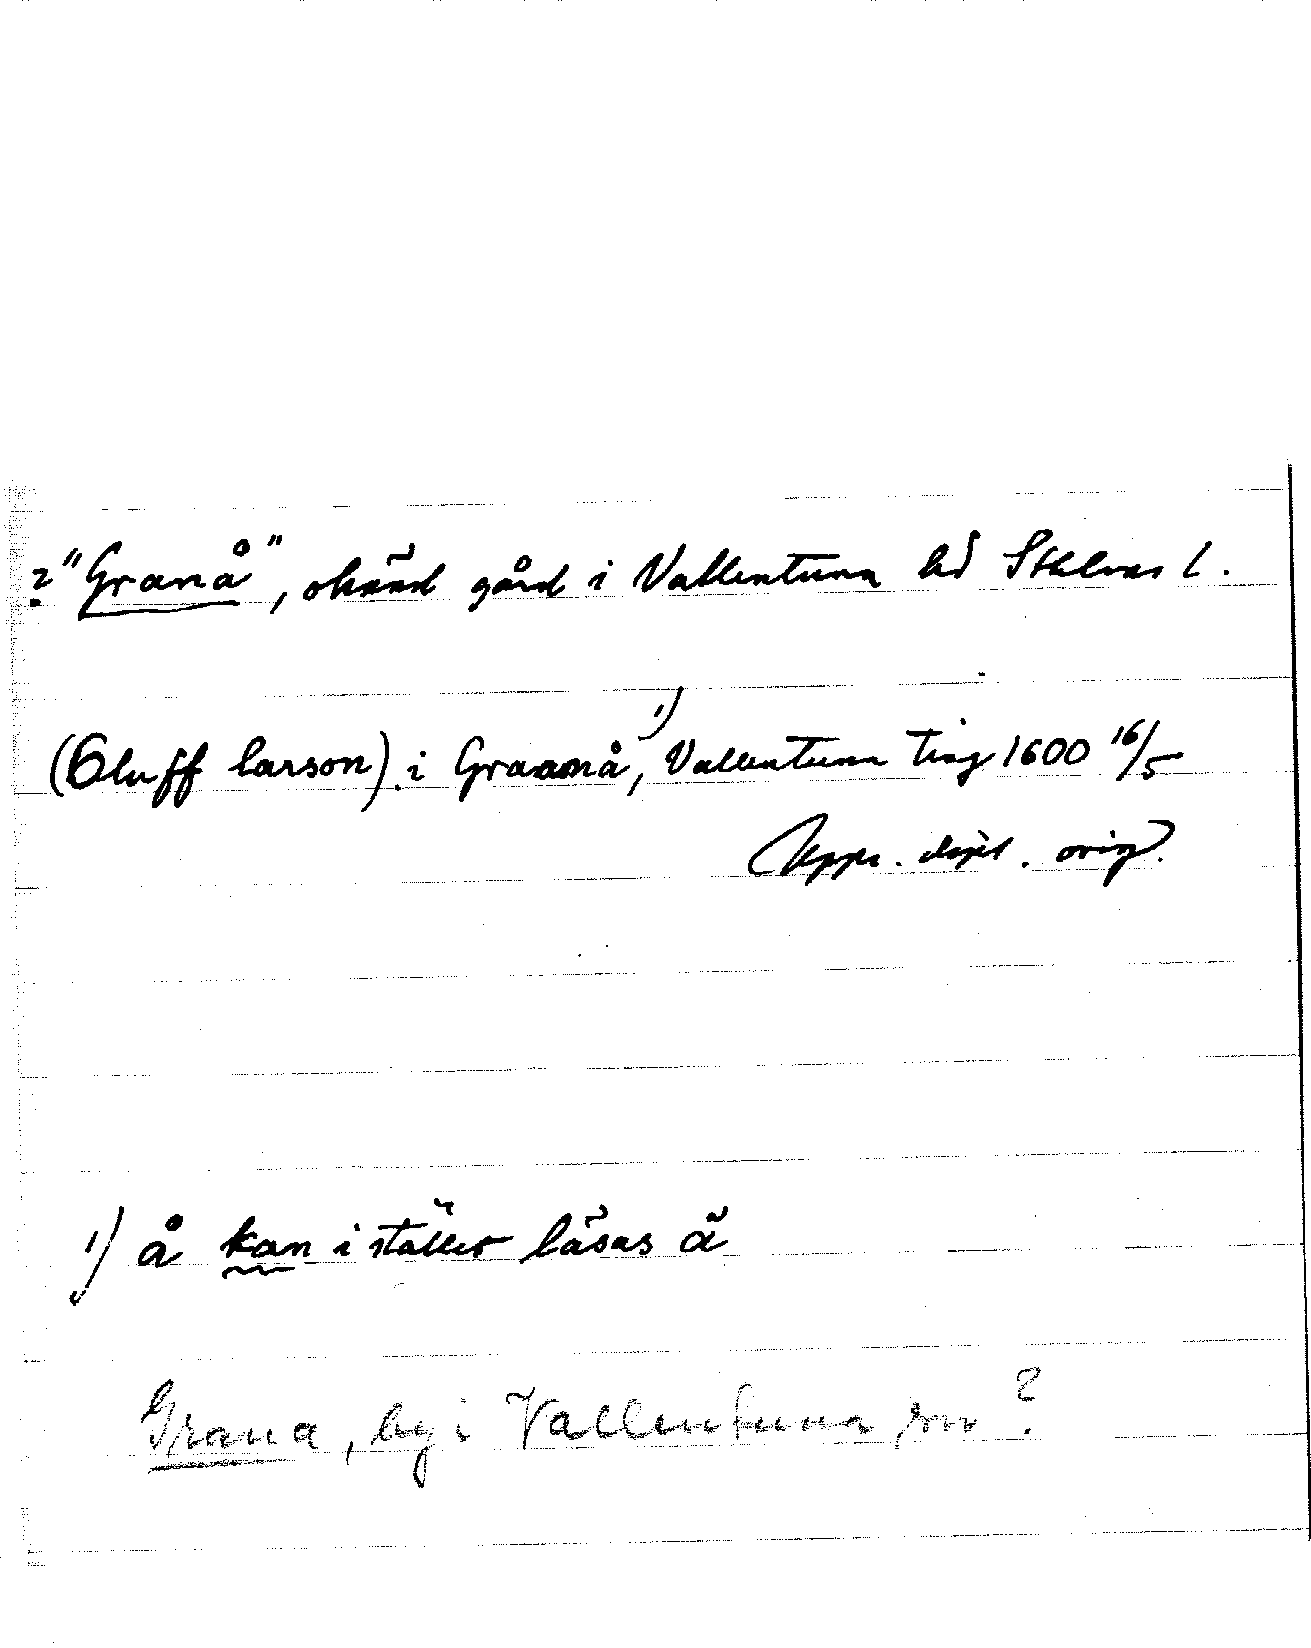 ? "Granå", okänd gård i Vallentuna hd Sthlms l.
(Oluff larson) i Graanå,¹⁾ Vallentuna ting 1600 16/5
Upps. dipl. orig.
1) å kan i stället läsas ä
Grana, by i Vallentuna sn?